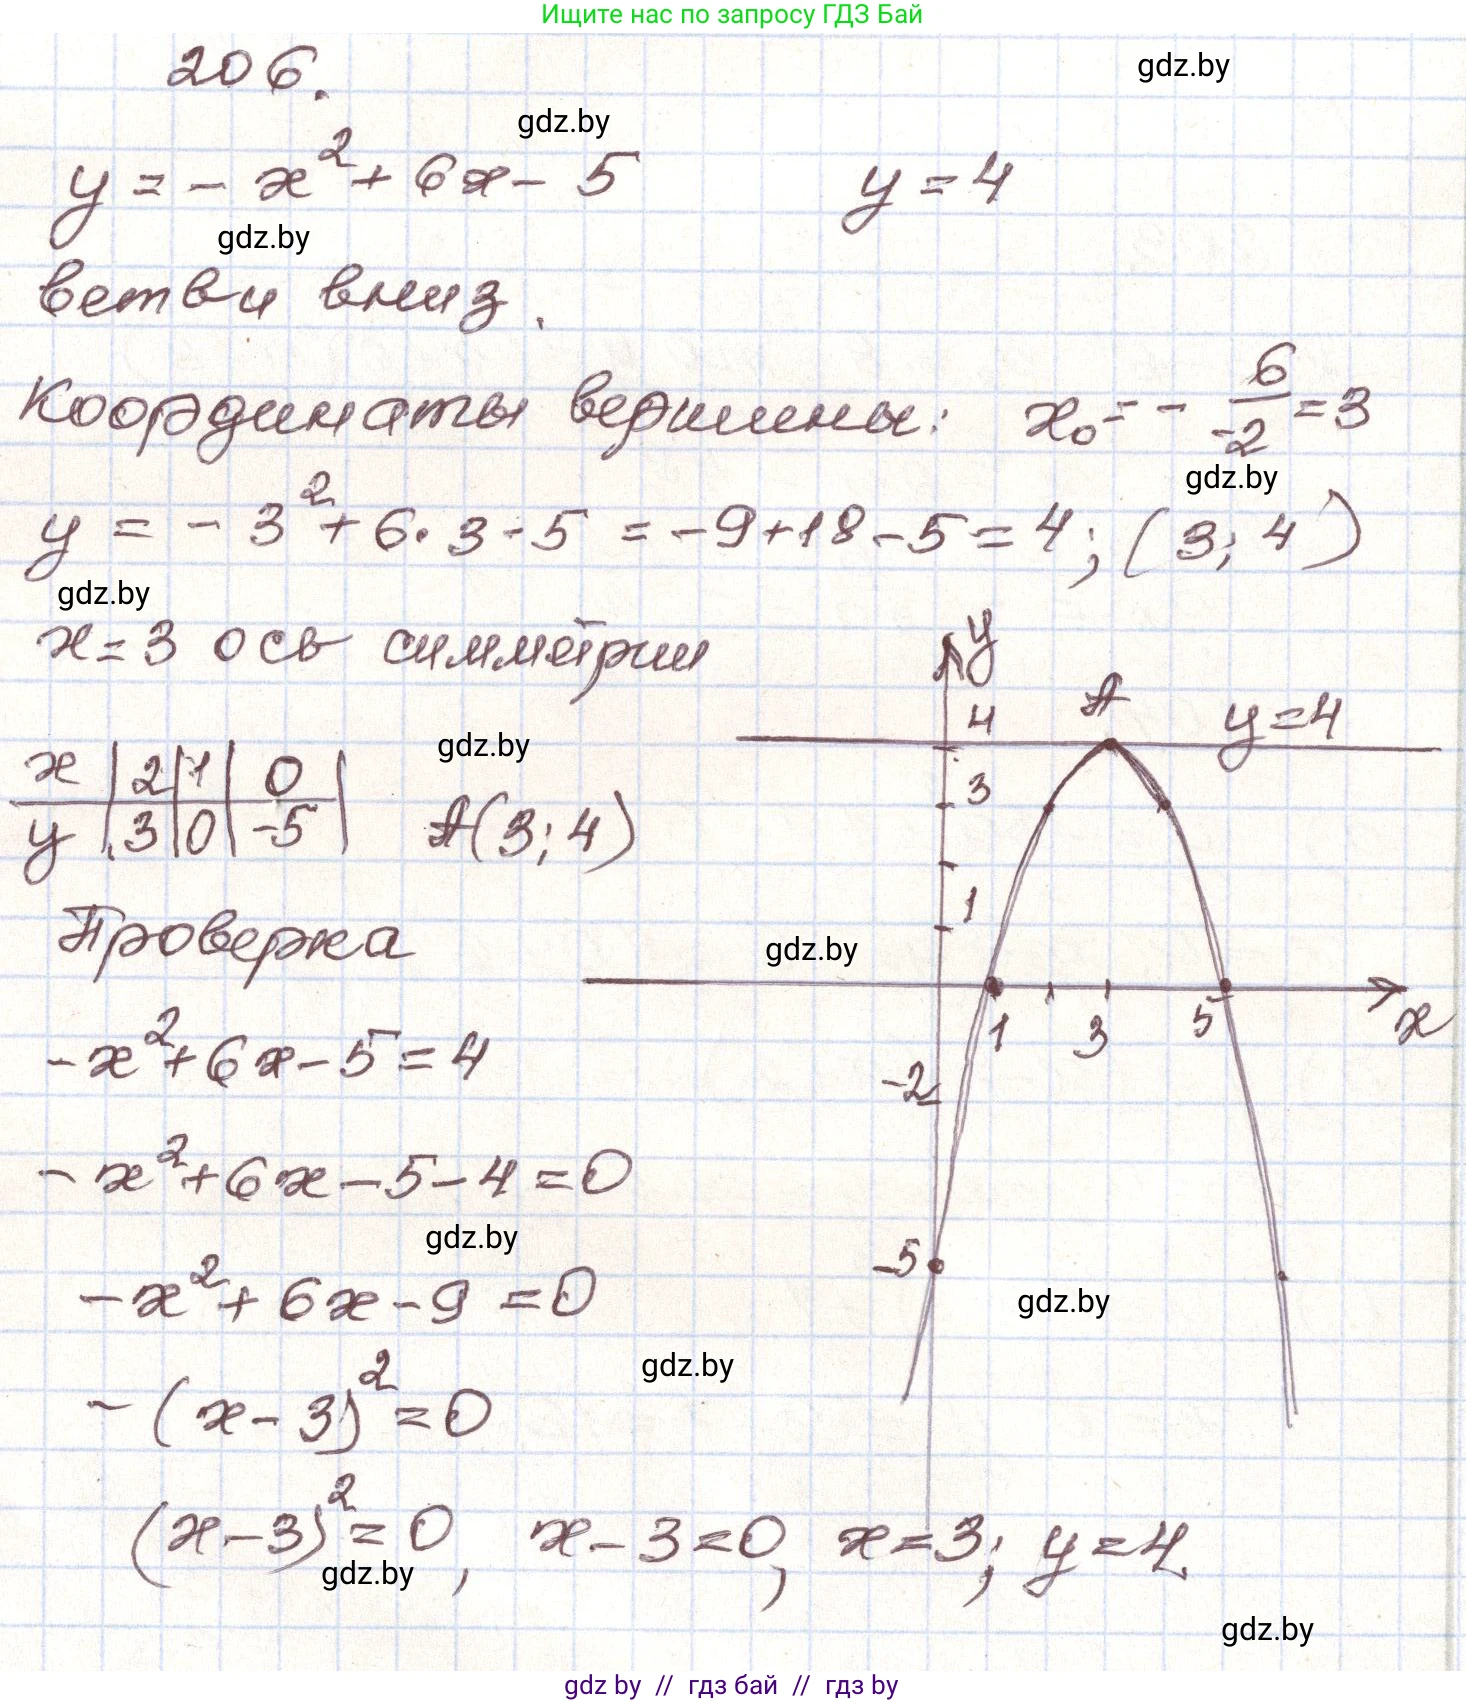 Ищите нас по запросу ГДЗ Бай
206.
gdz.by
gdz.by
y = - x² + 6x - 5    y = 4
gdz.by
ветви вниз.
Координаты вершины: x₀ = - 6/-2 = 3
gdz.by
y = - 3² + 6·3 - 5 = -9+18-5 = 4; (3; 4)
gdz.by
x = 3 ось симметрии
x | 2 | 1 | 0 |
y | 3 | 0 | -5 |
gdz.by
A(3; 4)
y
4
A
y = 4
3
1
gdz.by
1
3
5
x
-2
-5
Проверка
-x² + 6x - 5 = 4
-x² + 6x - 5 - 4 = 0
gdz.by
-x² + 6x - 9 = 0
gdz.by
gdz.by
-(x - 3)² = 0
(x - 3)² = 0, x - 3 = 0, x = 3; y = 4.
gdz.by
gdz.by
gdz by // гдз бай // гдз by